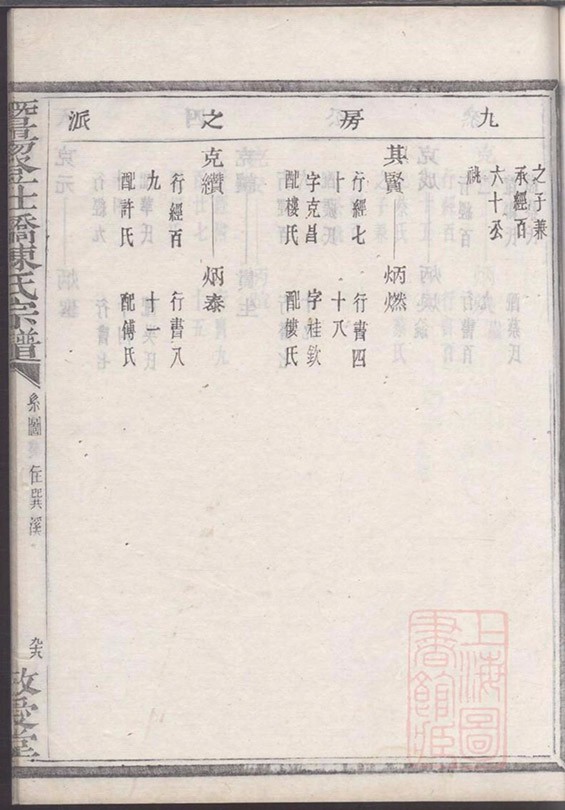 九房之派
之子兼
承經百
六十公
祧
其賢 炳燃
行經七 行書四
十一 十八
字克昌 字桂欽
配樓氏 配樓氏
克鑽 炳泰
行經百 行書八
九 十一
配許氏 配傅氏
暨陽 仕橋陳氏宗譜
系圖 住巽溪
敬受堂
上海圖書館